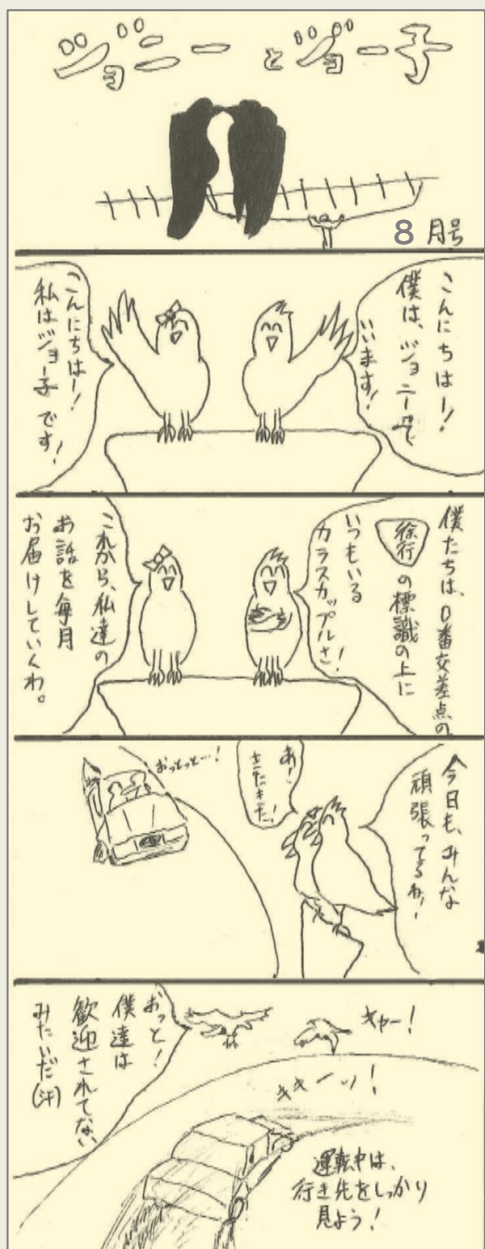 ジョニーとジョー子
8月号
こんにちはー!
僕は、ジョニーで
います!
こんにちはー!
私はジョー子です!
僕たちは、D番交差点の
徐行の標識の上に
いつもいる
カラスカップルさ!
これから、私達の
お話を毎月
お届けしていくわ。
今日も、みんな
頑張ってるわ!
あ!
きたきた!
おっとっと…!
キャー!
キキーッ!
おっと!
僕達は
歓迎されてない
みたいだ(汗)
運転中は、
行き先をしっかり
見よう!